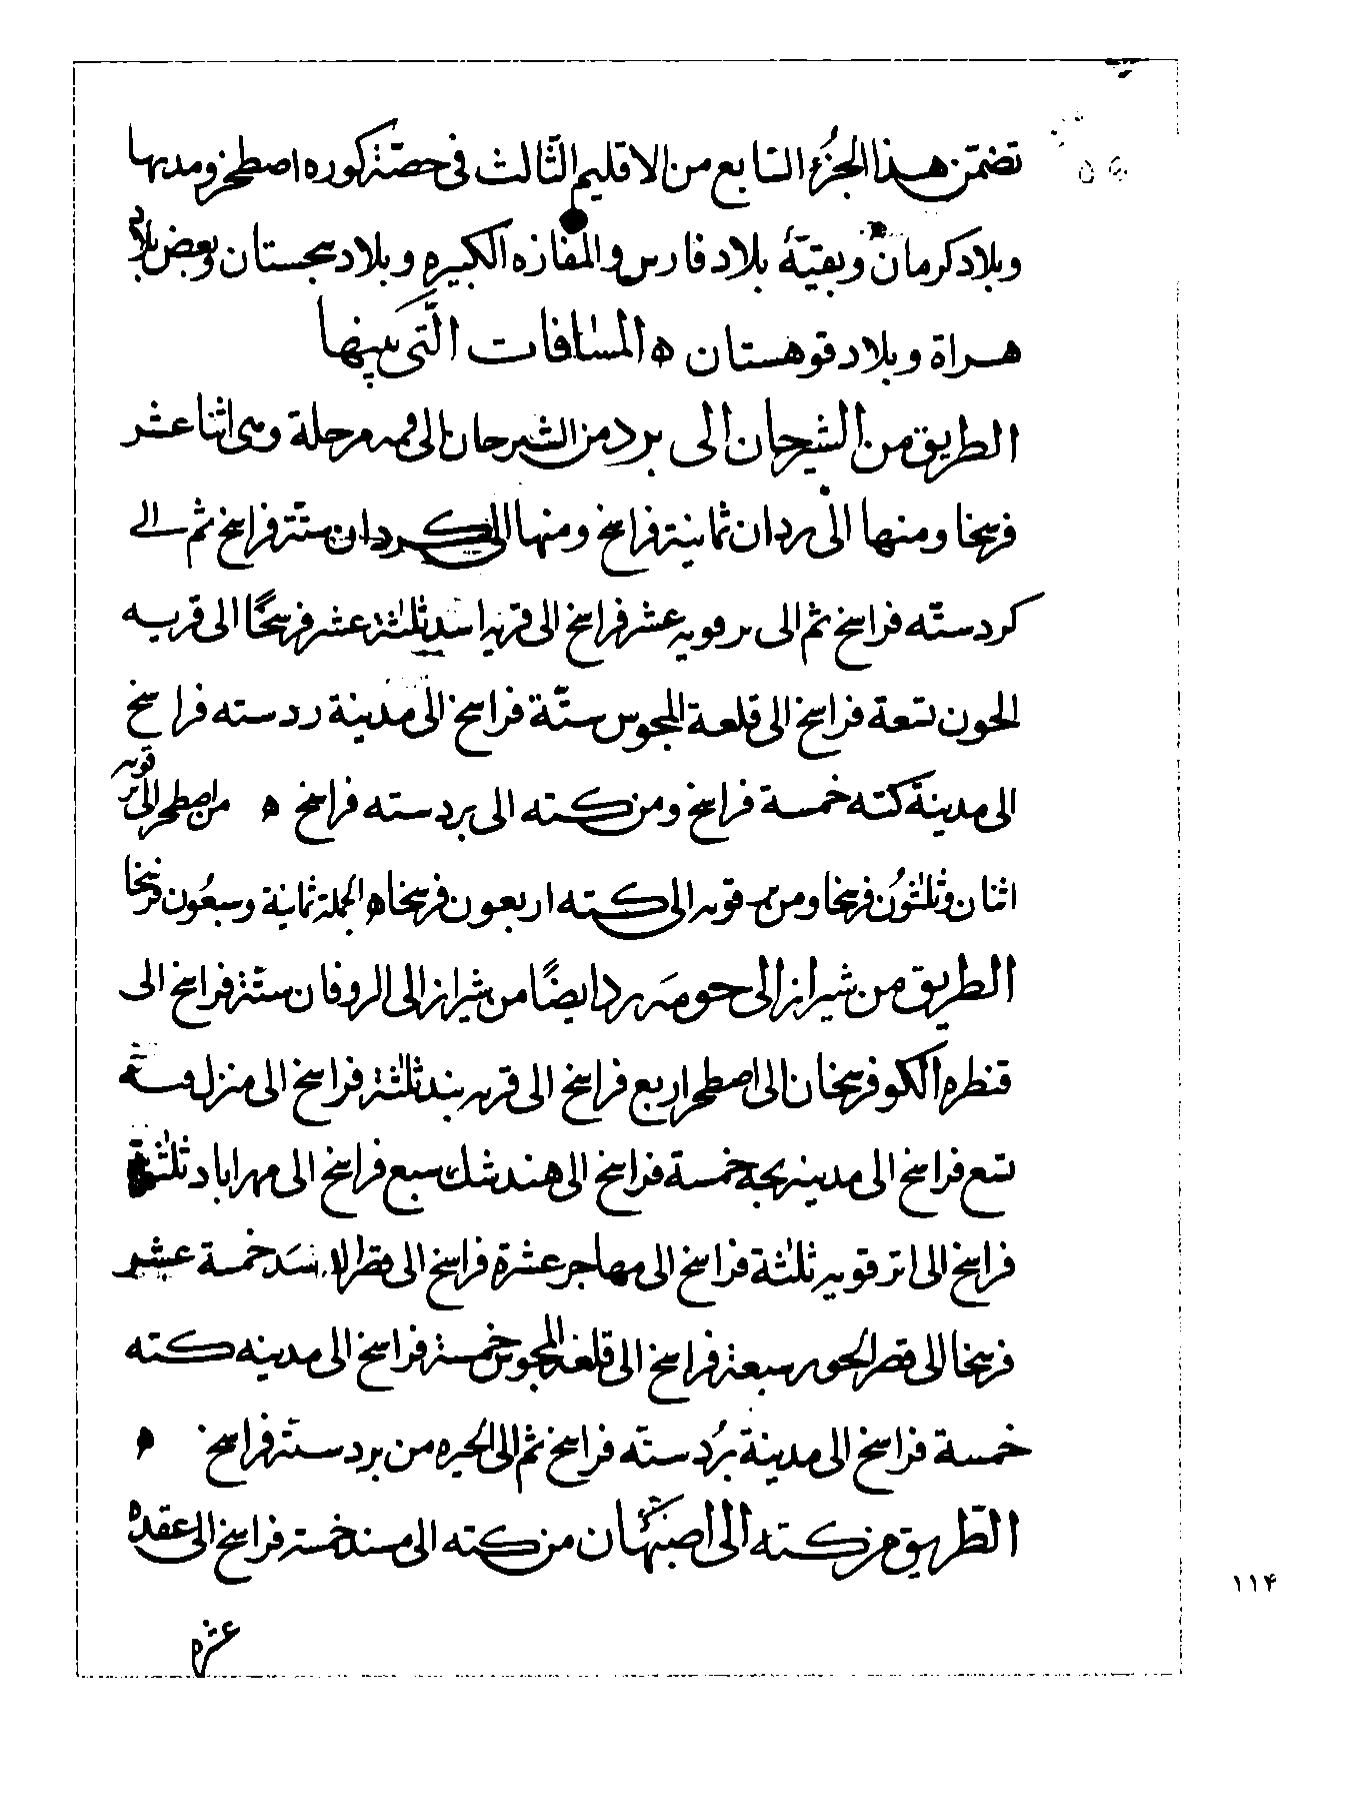 تضمّن هذا الجزء السّابع من الاقليم الثّالث فى حصّة كوره اصطخر ومدنها
وبلاد كرمان وبقيّة بلاد فارس والمفازه الكبيره وبلاد سجستان وبعض بلاد
هراة وبلاد قوهستان ه المسافات الّتى بينها
الطريق من الشيرجان الى برد من الشيرجان الى مرحلة وهى اثنا عشر
فرسخا ومنها الى بردان ثمانية فراسخ ومنها الى كردان ستّة فراسخ ثم الى
كرد ستّه فراسخ ثم الى برقويه عشر فراسخ الى قريه اسد ثلثة عشر فرسخًا الى قريه
الحون تسعة فراسخ الى قلعة المجوس ستّة فراسخ الى مدينة رد سته فراسخ
الى مدينة كته خمسة فراسخ ومن كته الى برد سته فراسخ ه من اصطخر الى برقويه
اثنان وثلثون فرسخا ومن برقويه الى كته اربعون فرسخا ه الجملة ثمانية وسبعون فرسخا
الطريق من شيراز الى حومه برد ايضًا من شيراز الى الروقان ستّة فراسخ الى
قنطره الكو فرسخان الى اصطخر اربع فراسخ الى قريه بند ثلثة فراسخ الى منزل
تسع فراسخ الى مدينه بجه خمسة فراسخ الى هندشك سبع فراسخ الى مهراباد ثلثة
فراسخ الى ابرقويه ثلثة فراسخ الى مهاجر عشرة فراسخ الى قصر الاسد خمسة عشر
فرسخا الى قصر الجور سبعة فراسخ الى قلعة المجوس خمسة فراسخ الى مدينه كته
خمسة فراسخ الى مدينة بُرد ستّه فراسخ ثم الى الحيره من برد ستّة فراسخ ه
الطّريق من كته الى اصبهان من كته الى مسند خمسة فراسخ الى عقده
عشره
١١۴